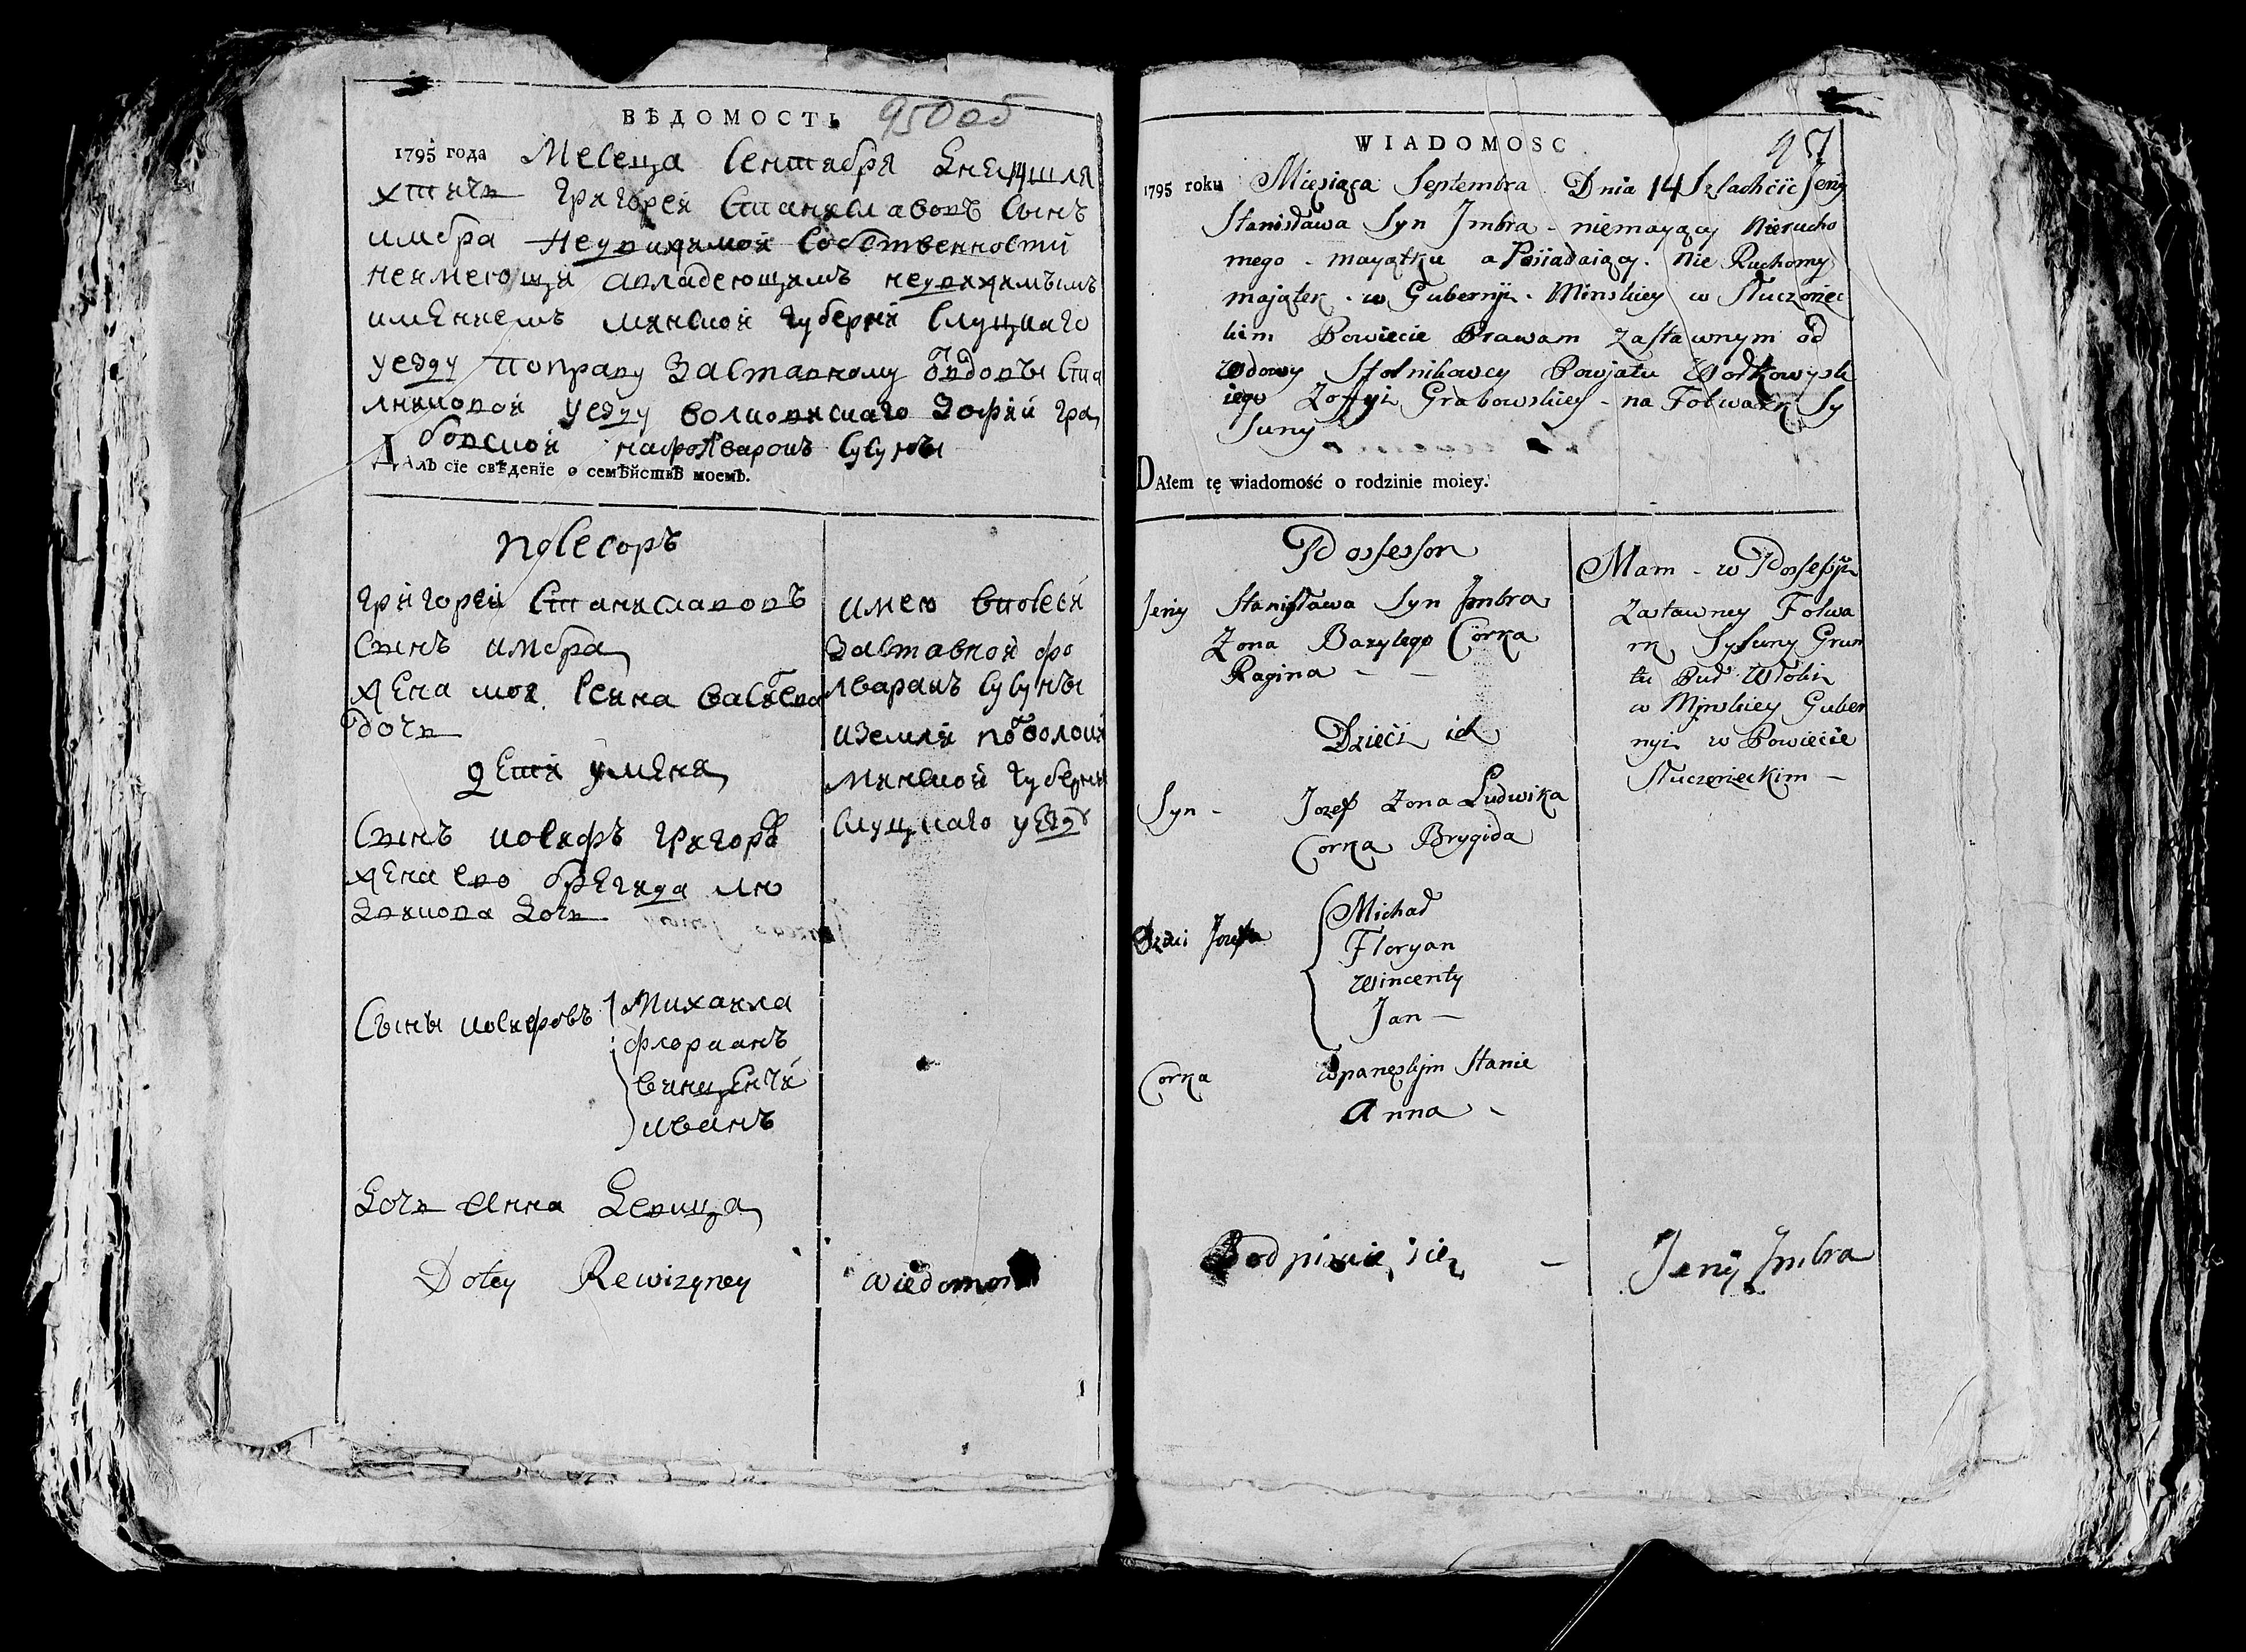 ВѢДОМОСТЬ 95об
1795 года Месеца Сентабря Дне 14 шля
хтичъ Григорей Станиславовъ Сынъ
имбра Недвижимой Собственности
неимеющи авладеющимъ недвижимымъ
имениемъ минской губерни Слуцкаго
уезду поправу Заставному от вдовы Стол
никовой уезду волковискаго Зофии Гра
бовской на фолваркъ Сусуны
ДАлъ сїе свѣденїе о семѣйствѣ моемъ.
посесоръ
Григорей Станиславовъ
Сынъ имбра
жена моя васильева
дочь
дети уменя
Сынъ иосифъ григоръ
жена ево брегида лю
двикова дочь
Сыны иосифовъ Михаила
флорианъ
винценти
иванъ
дочь анна девица
имею впосеси
Заставной фо
лваракъ Сусуны
иземли
минской губерни
слуцкаго уезду
Dotey Rewizyney wiedomosci
WIADOMOSC 97
1795 roku Miesiąca Septembra Dnia 14 Szlachcic Jerzy
Stanisława Syn Jmbra - niemaiący Nierucho
mego - maiątku a Posiadaiący. Nie Ruchomy
majątek . w Gubernji . Minskiey w Słuczoriec
kim Powiecie Prawam zastawnym od
wdowy Stolnikowey Powjatu Wołkowysk
iego Zofyi Grabowskiey - na Folwark Sy
suny
DAłem tę wiadomość o rodzinie moiey.
Possessor
Jerzy Stanisława Syn Jmbra
Zona Bazylego Córka
Ragina - -
Dzieci ich
Syn - Jozef Zona Ludwika
Corka Brygida
Dzieci Jozefa Michał
Floryan
Wincenty
Jan -
Corka w panęskjm Stanie
Anna -
Mam - w Possessji
Zastawney Folwa
rk Sysuny Grun
tu Puł Włoki
w Mjnskiey Guber
nyi w Powiecie
Słuczorieckim -
Podpisuie sie - Jerzy Jmbra